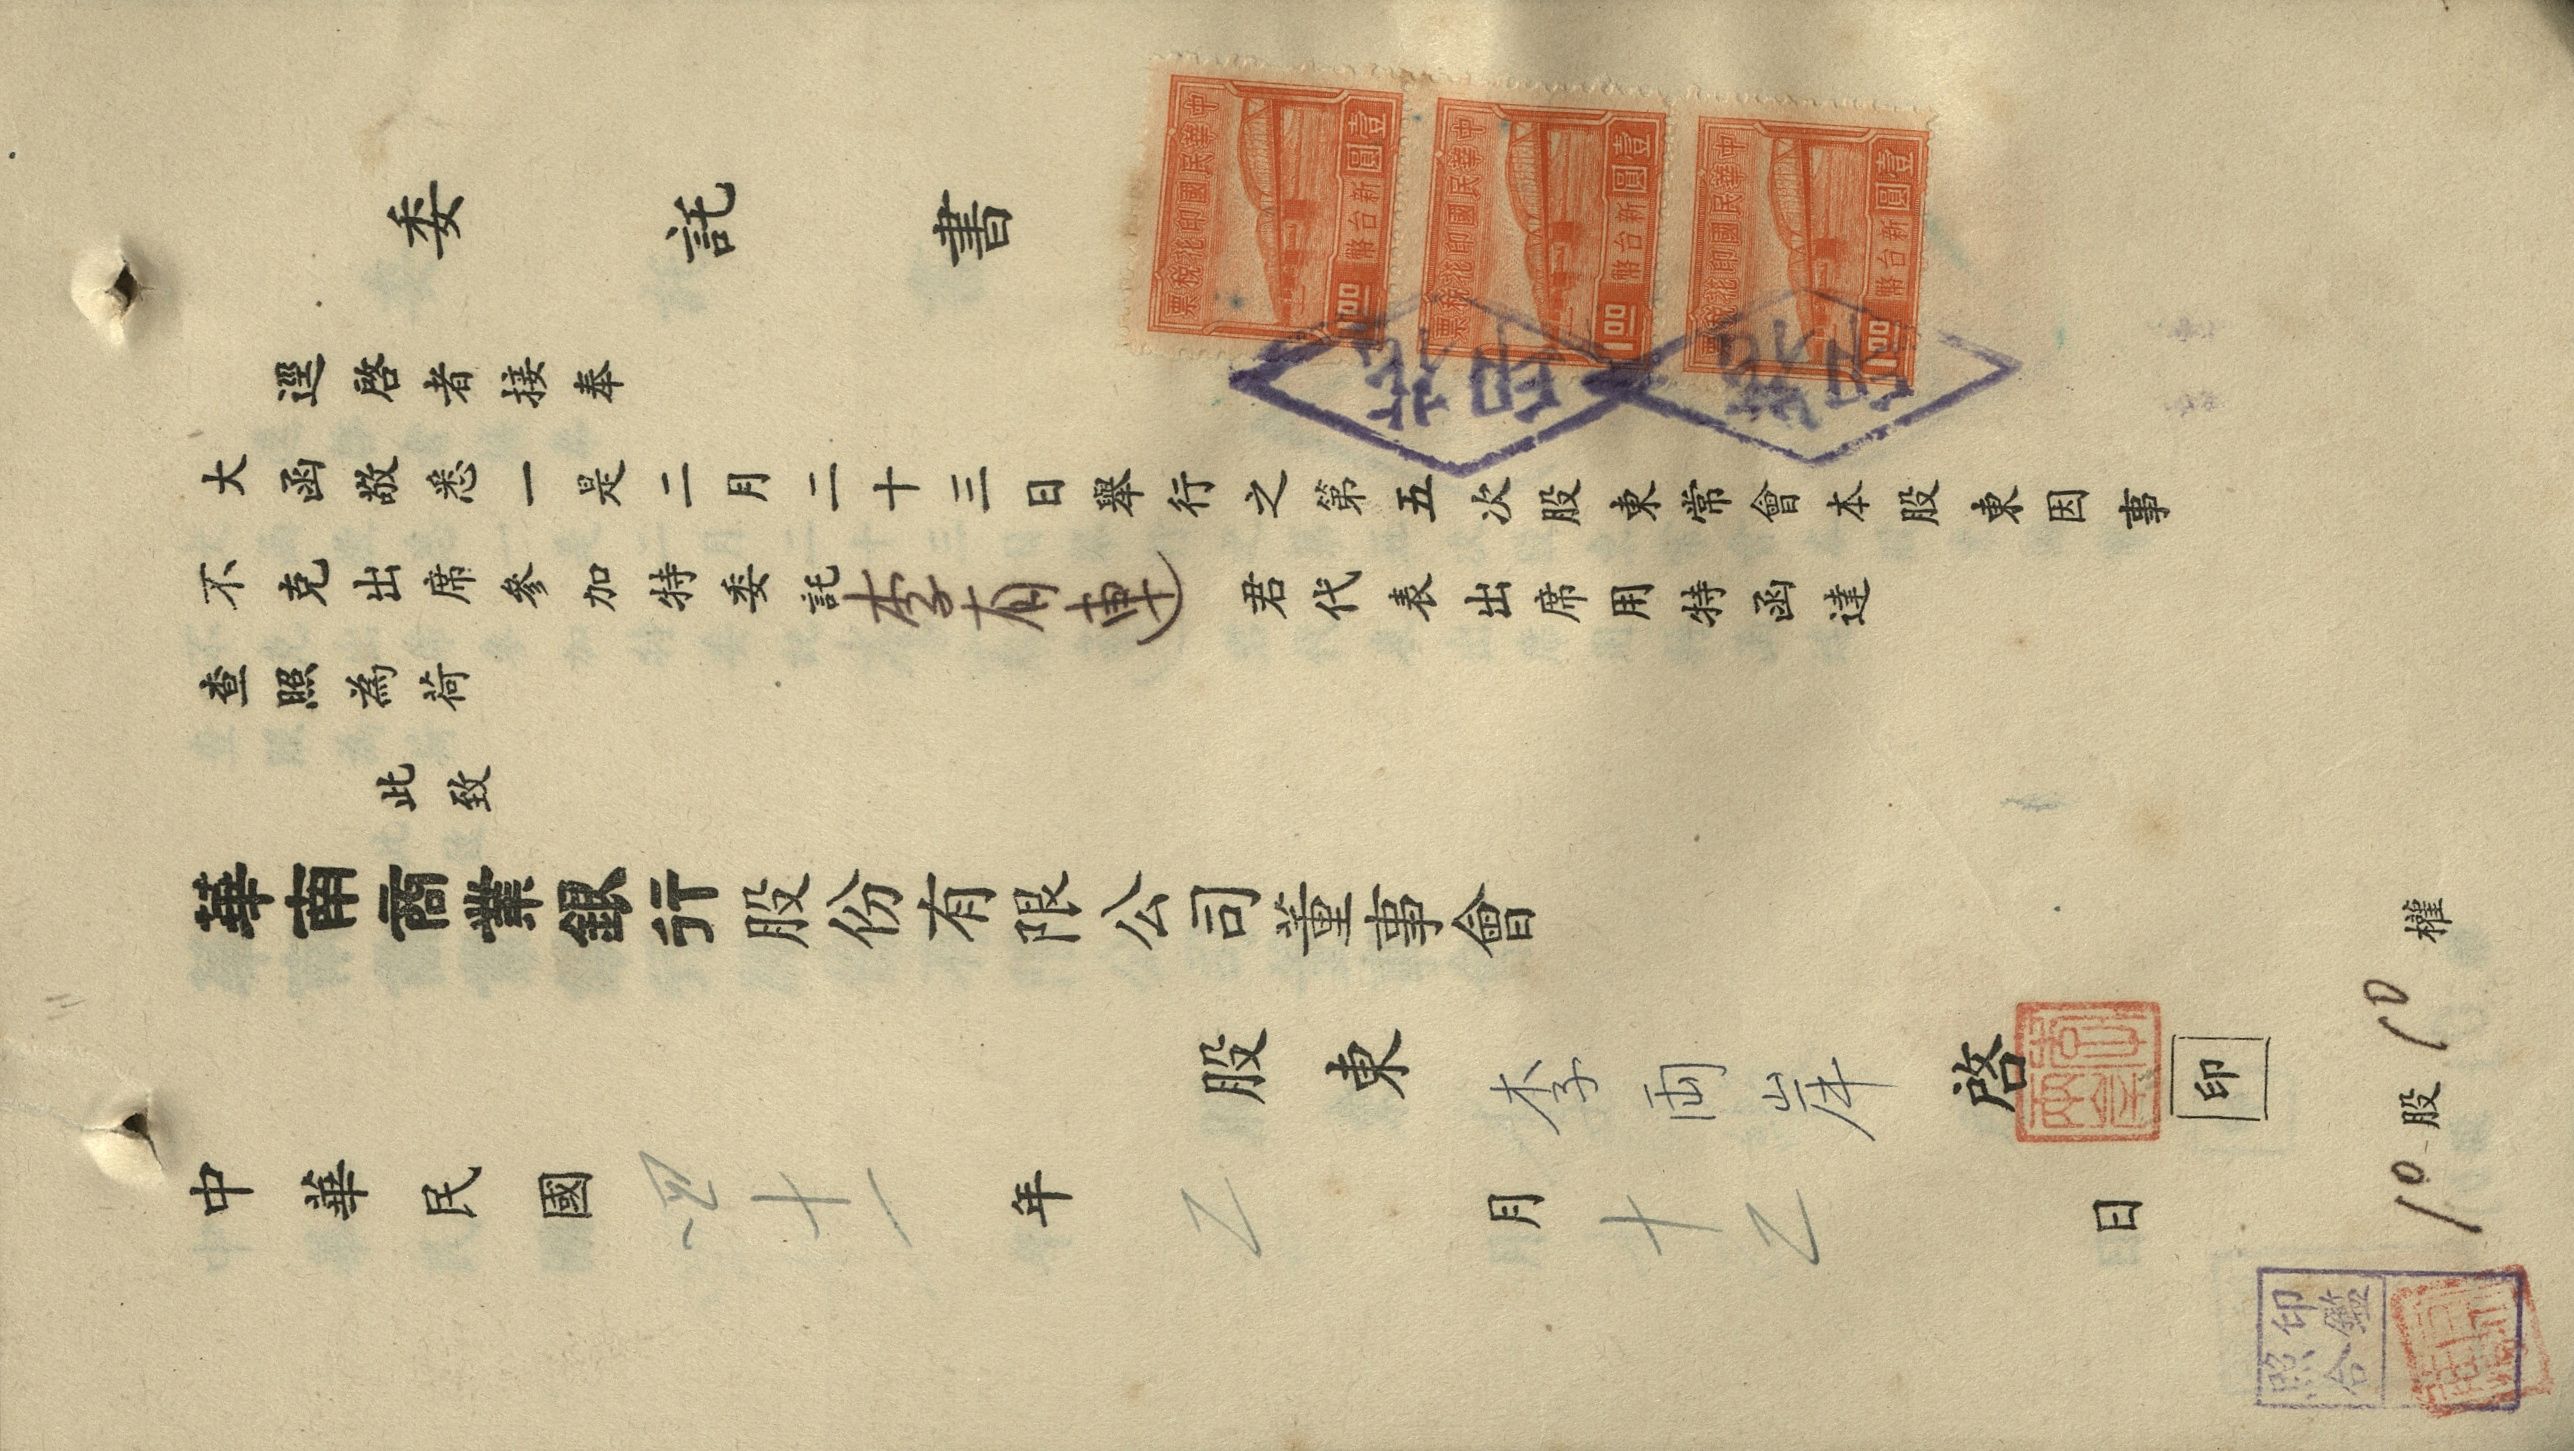 委託書
逕啓者接奉
大函敬悉一是二月二十三日舉行之第五次股東常會本股東因事
不克出席參加特委託李有連君代表出席用特函達
查照為荷
此致
華南商業銀行股份有限公司董事會
股東 李雨岸 啓 印
中華民國四十一年乙月十乙日
10股10權
中華民國印花稅票
壹圓 新台幣
1.00
中華民國印花稅票
壹圓 新台幣
1.00
中華民國印花稅票
壹圓 新台幣
1.00
印花
印鑑
照合